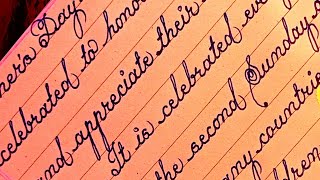 ner's Day
celebrated to hono
and appreciate their
It is celebrated ev
the second Sunday o
any countrie
ldren